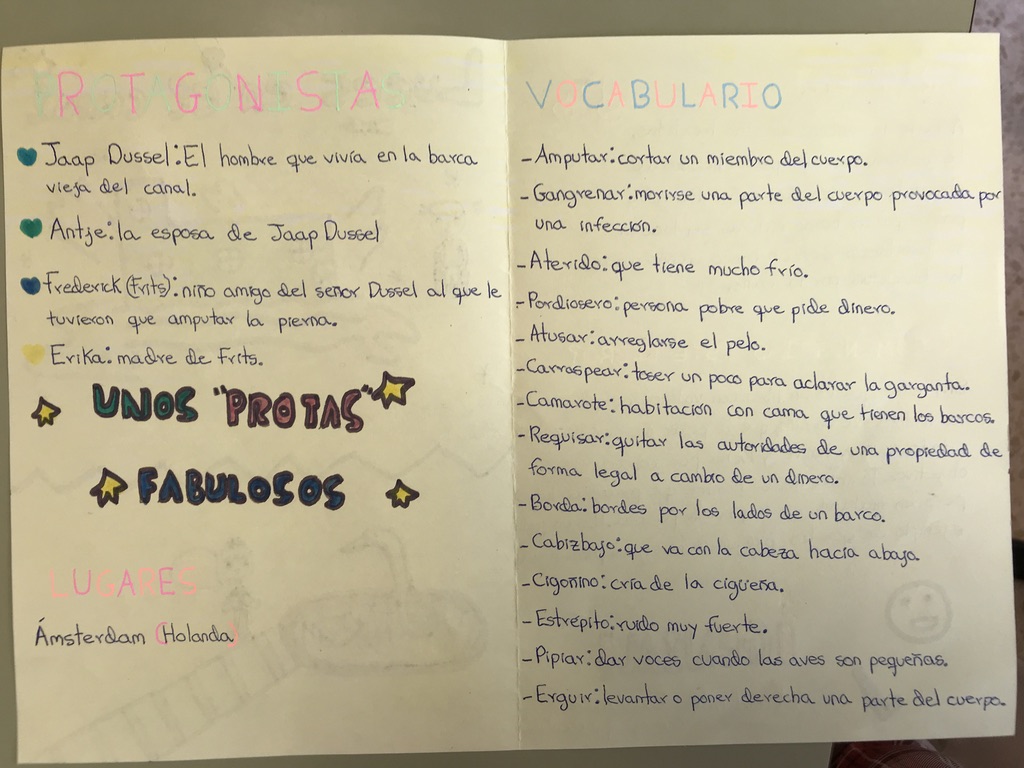 PROTAGONISTAS
Jaap Dussel: El hombre que vivía en la barca
vieja del canal.
Antje: la esposa de Jaap Dussel
Frederick (Frits): niño amigo del señor Dussel al que le
tuvieron que amputar la pierna.
Erika: madre de Frits.
UNOS "PROTAS"
FABULOSOS
LUGARES
Ámsterdam (Holanda)
VOCABULARIO
- Amputar: cortar un miembro del cuerpo.
- Gangrenar: morirse una parte del cuerpo provocada por
una infección.
- Aterido: que tiene mucho frío.
- Pordiosero: persona pobre que pide dinero.
- Atusar: arreglarse el pelo.
- Carraspear: toser un poco para aclarar la garganta.
- Camarote: habitación con cama que tienen los barcos.
- Requisar: quitar las autoridades de una propiedad de
forma legal a cambio de un dinero.
- Borda: bordes por los lados de un barco.
- Cabizbajo: que va con la cabeza hacia abajo
- Cigoñino: cría de la cigüeña.
- Estrépito: ruido muy fuerte.
- Pipiar: dar voces cuando las aves son pequeñas.
- Erguir: levantar o poner derecha una parte del cuerpo.